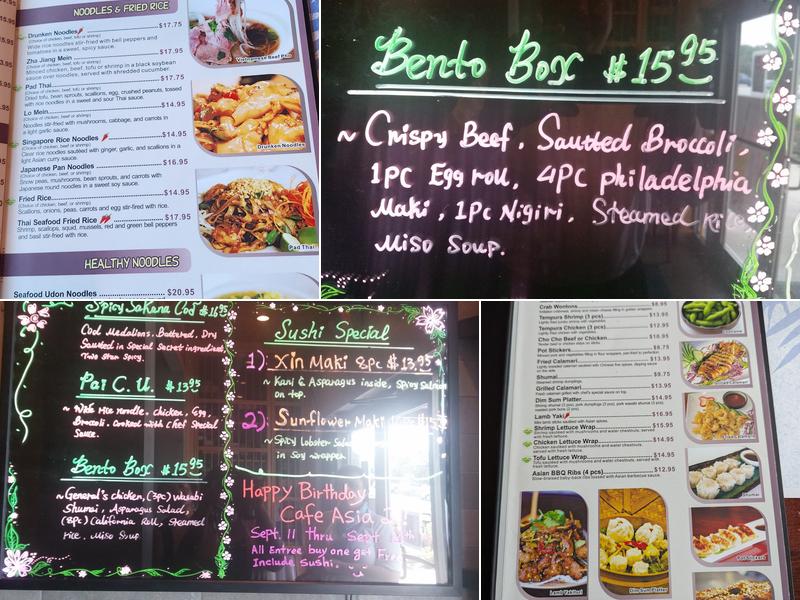 NOODLES & FRIED RICE
Drunken Noodles $17.75
(Choice of chicken, beef, tofu or shrimp)
Wide rice noodles stir-fried with bell peppers and
tomatoes in a sweet, spicy sauce.
Zha Jiang Mein $17.95
Minced chicken, beef, tofu or shrimp in a black soybean
sauce over noodles, served with shredded cucumber.
Pad Thai $17.75
(Choice of chicken, beef, tofu or shrimp)
Dried tofu, bean sprouts, scallions, egg, crushed peanuts, tossed
with rice noodles in a sweet and sour Thai sauce.
Lo Mein $14.95
(Choice of chicken, beef, or shrimp)
Noodles stir-fried with mushrooms, cabbage, and carrots in
a light garlic sauce.
Singapore Rice Noodles $14.95
(Choice of chicken, beef, tofu or shrimp)
Clear rice noodles sautéed with ginger, garlic, and scallions in a
light Asian curry sauce.
Japanese Pan Noodles $16.95
(Choice of chicken, beef, or shrimp)
Snow peas, mushrooms, bean sprouts, and carrots with
Japanese round noodles in a sweet soy sauce.
Fried Rice $14.95
(Choice of chicken, beef, or shrimp)
Scallions, onions, peas, carrots and egg stir-fried with rice.
Thai Seafood Fried Rice $17.95
Shrimp, scallops, squid, mussels, red and green bell peppers
and basil stir-fried with rice.
HEALTHY NOODLES
Seafood Udon Noodles $20.95
Vietnamese Beef Pho
Drunken Noodles
Pad Thai
Bento Box $15.95
~ Crispy Beef. Sautted Broccoli.
1PC Egg roll, 4PC philadelphia
Maki, 1Pc Nigiri. Steamed Rice,
Miso Soup.
Spicy Sakana Cod $16.95
Cod Medalions. Battered. Dry
Sautted in Special Secret ingredients
Two Star Spicy.
Pai C. U. $13.95
~ Wide rice noodle, chicken, Egg,
Broccoli. cooked with chef Special
Sauce.
Bento Box $15.95
~ General's chicken, (3pc) wasabi
Shumai, Asparagus Salad,
(8pc) California Roll, Steamed
rice, Miso Soup
Sushi Special
1): Xin Maki 8pc $13.95
~ Kani & Asparagus inside, Spicy Salmon
on top.
2): Sunflower Maki
~ Spicy Lobster
in Soy wrapper
Happy Birthday
Cafe Asia
Sept. 11 thru Sept
All Entree buy one get Free
Include Sushi.
Crab Wontons $8.95
Tempura Shrimp (3 pcs) $13.95
Tempura Chicken (3 pcs) $12.95
Cho Cho Beef or Chicken $16.95
Pot Stickers $8.75
Fried Calamari $13.95
Shumai $9.75
Steamed shrimp dumplings.
Grilled Calamari $13.95
Grilled calamari with chef's special sauce on top.
Dim Sum Platter $14.95
Lamb Yaki $16.95
Shrimp Lettuce Wrap $15.95
Chicken Lettuce Wrap $14.95
Tofu Lettuce Wrap $14.95
Asian BBQ Ribs (4 pcs) $12.95
Slow-braised baby-back ribs tossed with Asian barbecue sauce.
Shumai
Pot Stickers
Dim Sum Platter